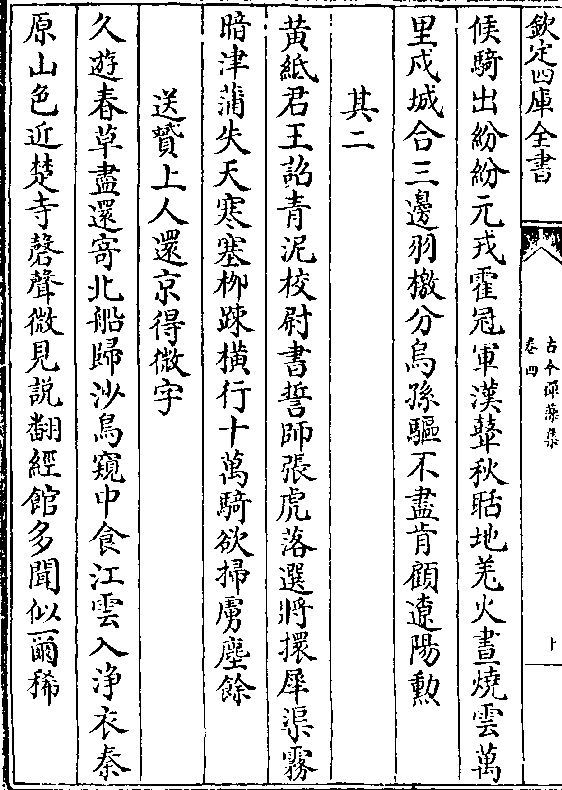 欽定四庫全書
古今禪藻集
卷四
候騎出紛紛元戎霍冠軍漢鼙秋聒地羌火晝燒雲萬
里戍城合三邊羽檄分烏孫驅不盡肯顧遼陽勲
其二
黃紙君王詔青泥校尉書誓師張虎落選將擐犀渠霧
暗津蒲失天寒塞柳踈横行十萬騎欲掃虜塵餘
送贊上人還京得微字
久遊春草盡還寄北船歸沙鳥窺中食江雲入浄衣秦
原山色近楚寺磬聲微見說翻經館多聞似爾稀